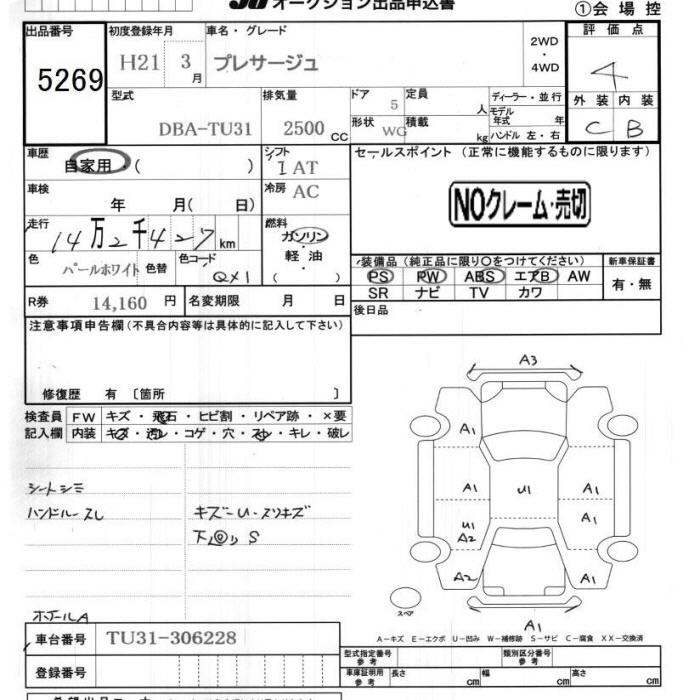 オークション出品申込書
①会場控
出品番号
5269
初度登録年月
H21 3月
車名・グレード
プレサージュ
2WD
・
4WD
評価点
4
外装 内装
C B
型式
DBA-TU31
排気量
2500 CC
ドア 5
定員 人
ディーラー・並行
モデル年式 年
形状 WG
積載 kg
ハンドル 左・右
車歴
自家用・( )
シフト
I AT
車検
年 月( 日)
冷房 AC
走行
14万2千427km
燃料
ガソリン
・
軽油
( )
色 パールホワイト 色替
色コード
QX1
R券 14,160 円
名変期限 月 日
セールスポイント (正常に機能するものに限ります)
NOクレーム・売切
装備品 (純正品に限り○をつけてください)
新車保証書
PS PW ABS エアB AW
SR ナビ TV カワ
有・無
後日品
注意事項申告欄(不具合内容等は具体的に記入して下さい)
修復歴 有 〔箇所 〕
検査員
記入欄
FW キズ・飛石・ヒビ割・リペア跡・×要
内装 キズ・汚レ・コゲ・穴・スレ・キレ・破レ
シートシミ
ハンドルスレ
キズ-U-スリキズ
下回りS
ホイールA
A3
A1
A1
U1
A1
U1
A2
A1
A2
A1
A1
スペア
A-キズ E-エクボ U-凹み W-補修跡 S-サビ C-腐食 XX-交換済
車台番号 TU31-306228
登録番号
型式指定番号
参考
類別区分番号
参考
車庫証明用
参考
長さ cm 幅 cm 高さ cm